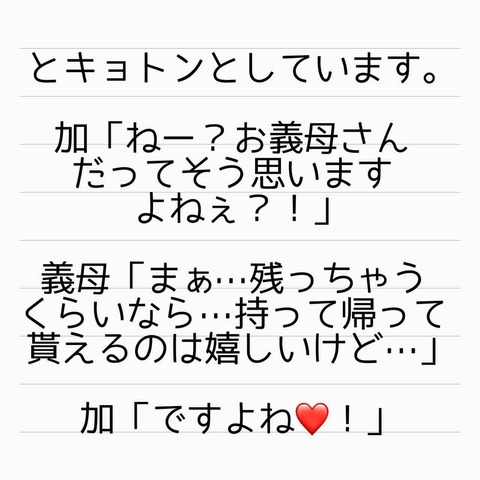 とキョトンとしています。
加「ねー？お義母さん
だってそう思います
よねぇ？！」
義母「まぁ…残っちゃう
くらいなら…持って帰って
貰えるのは嬉しいけど…」
加「ですよね❤️！」